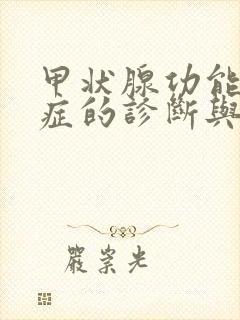 甲状腺功能
症的診斷與
嚴崇光